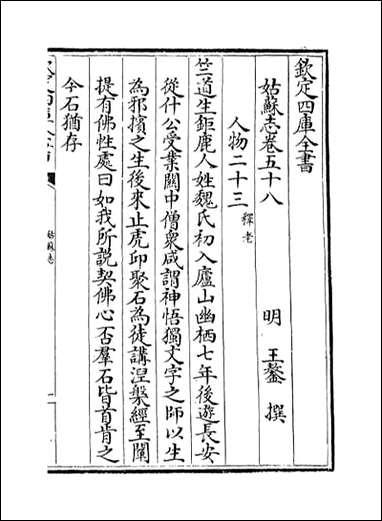 欽定四庫全書
姑蘇志卷五十八
明 王鏊 撰
人物二十三 釋老
竺道生鉅鹿人姓魏氏初入廬山幽栖七年後遊長安
從什公受業關中僧衆咸謂神悟獨文字之師以生
為邪擯之生後來止虎邱聚石為徒講涅槃經至闡
提有佛性處曰如我所説契佛心否羣石皆首肯之
今石猶存
姑蘇志